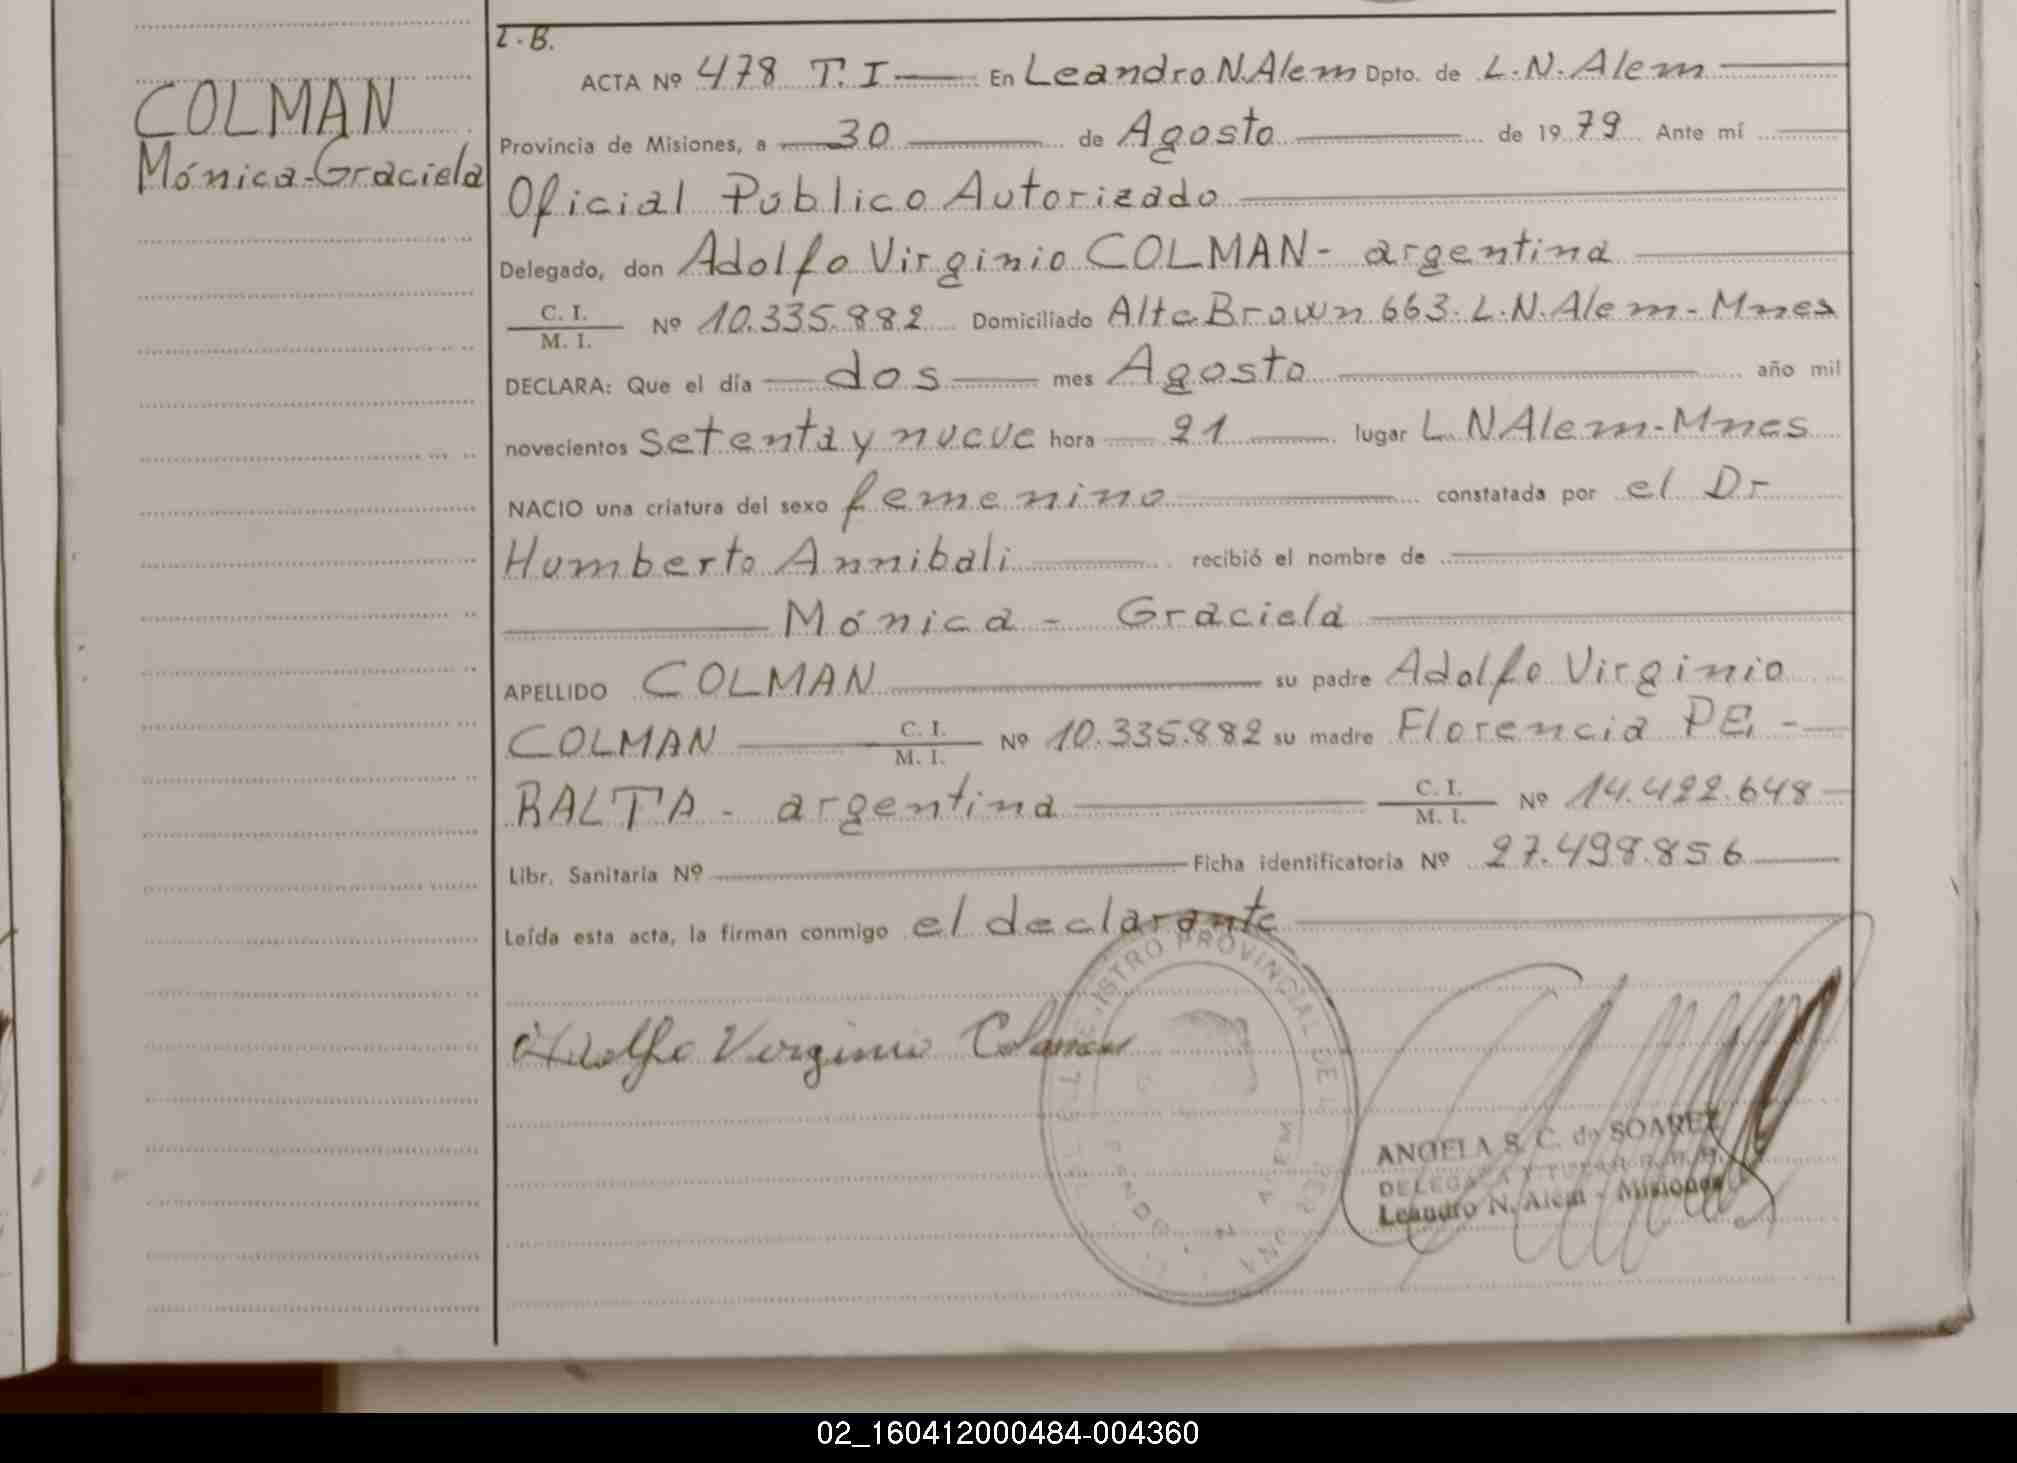 L.B.
COLMAN
Mónica-Graciela
ACTA Nº 478 T. I En Leandro N. Alem Dpto. de L. N. Alem
Provincia de Misiones, a 30 de Agosto de 1979 Ante mí
Oficial Público Autorizado
Delegado, don Adolfo Virginio COLMAN - argentina
C. I.
M. I. Nº 10.335.882 Domiciliado Alte Brown 663. L.N. Alem - Mnes
DECLARA: Que el día dos mes Agosto año mil
novecientos setenta y nueve hora 21 lugar L. N Alem - Mnes
NACIO una criatura del sexo femenino constatada por el Dr
Humberto Annibali recibió el nombre de
Mónica - Graciela
APELLIDO COLMAN su padre Adolfo Virginio
COLMAN C. I. M. I. Nº 10.335.882 su madre Florencia PE -
RALTA - argentina C. I. M. I. Nº 14.422.648
Libr. Sanitaria Nº Ficha identificatoria Nº 27.498.856
Leída esta acta, la firman conmigo el declarante
Adolfo Virginio Colman
REGISTRO PROVINCIAL DE
ANGELA S. C. de SOAREZ
DELEGADA
Leandro N. Alem - Misiones
02_160412000484-004360